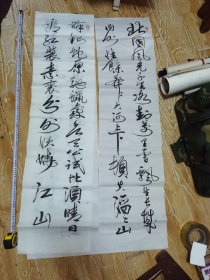 北国风光千里冰封万里雪飘望长城
内外惟馀莽莽大河上下顿失滔滔山
舞银蛇原驰蜡象欲与天公试比高须晴日
看红装素裹分外妖娆江山